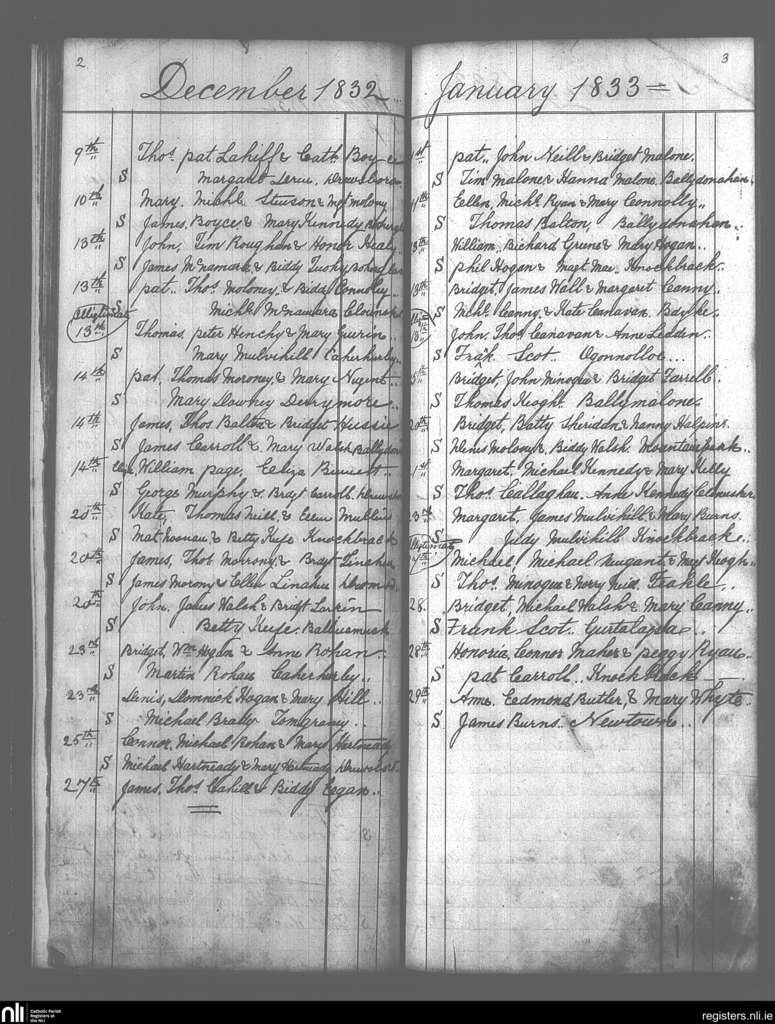 2
December 1832
9th Thos. pat Lahiff & Cath. Boyce
S Margaret
10th Mary. Michl
S James Boyce & Mary Kennedy
13th John, Tim Roughan & Honor Healy
S James McNamara & Biddy
13th pat. Thos. Moloney & Biddy Connolley
S Michl. McNamara
Illigitimate
13th Thomas peter Hinchy & Mary Guerin
S Mary Mulvihill Caherhurley
14th pat, Thomas Moroney & Mary Nugent
S Mary Dawney Derrymore
14th James, Thos Balton & Bridget Hussie
S James Carroll & Mary Walsh
14th William page, Eeliza
S George Murphy & Bragt Carroll.
20th Kate, Thomas Neill, & Ellen Mullins
S Mat Noonan & Betty Kefe Knockbrack
20th James, Thos Morrony & Bragt Linahan
S James Morony & Ellen Linahan
20th John, James Walsh & Bridgt Larkin
S Betty Kefe.
23rd Bridget, Wm Hogan & Anne Rohan
S Martin Rohan Caherhurley
23rd Denis, Domnick Hogan & Mary Hill
S Michael Brady Tomgrany
25th Connor, Michael Rohan & Mary Hartneady
S Michael Hartneady & Mary Hartneady
27th James, Thos Cahill & Biddy Eagan
3
January 1833
1st pat John Neill & Bridget Malone.
S Tim Malone & Hanna Malone Ballydonahan
11th Ellen, Michl Ryan & Mary Connolly
S Thomas Balton, Ballydonahan
13th William, Richard Greene & Mary Hogan
S Phil Hogan & Knockbrack
13th Bridget, James Wall & Margaret Canny
S Michl. Canny & Kate Canavan. Bdyke
13th John, Thos Canavan & Anne Leddin
S Frank Scot. Ogonnolloe
15th Bridget, John Minogue & Bridget Farrell
S Thomas Keogh. Ballymalone
20th Bridget, Batty Sheridan & Nanny Halpins
S Denis Molony & Biddy Walsh. Mountainpark
1st Margaret, Michael Kennedy & Mary Kelly
S Thos. Callaghan. Anne Kennedy
23rd Margaret, James Mulvihill & Mary Burns
S Jildy Mulvihill Knockbrack
Illigitimate
Michael, Michael Nugant & Magt Keogh
S Thos Minogue & Feakle
28. Bridget, Michael Walsh & Mary Canny
S Frank Scot.
28th Honoria, Connor Maher & peggy Ryan
S pat Carroll. Knockbrack
29th Anne. Eedmond Butler, & Mary Whyte
S James Burns. Newtown
nli
Catholic Parish
Registers at
the NLI
registers.nli.ie